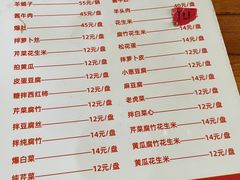 羊蝎子 55元/锅
酱牛肉 45元/盘
爆肚
拌萝卜丝 12元/盘
芹菜花生米 12元/盘
拍黄瓜 12元/盘
皮蛋豆腐 12元/盘
糖拌西红柿 12元/盘
芹菜腐竹 12元/盘
拌豆腐丝 12元/盘
拌纯腐竹 14元/盘
爆白菜 14元/盘
12元/盘
羊头肉 40元/盘
花生米
松花蛋
拌萝卜皮 12元/盘
小葱豆腐 12元/盘
麻豆腐
老虎菜 12元/盘
拌白菜心 12元/盘
芹菜腐竹花生米 14元/盘
黄瓜腐竹花生米 14元/盘
黄瓜花生米 12元/盘